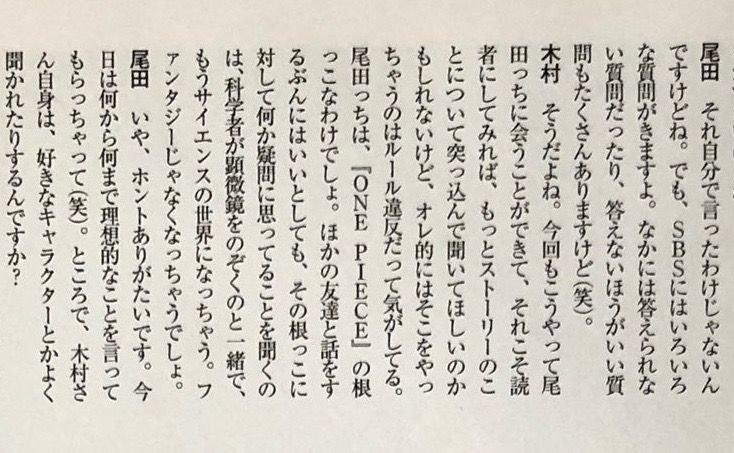 尾田　それ自分で言ったわけじゃないん
ですけどね。でも、SBSにはいろいろ
な質問がきますよ。なかには答えられな
い質問だったり、答えないほうがいい質
問もたくさんありますけど(笑)。
木村　そうだよね。今回もこうやって尾
田っちに会うことができて、それこそ読
者にしてみれば、もっとストーリーのこ
とについて突っ込んで聞いてほしいのか
もしれないけど、オレ的にはそこをやっ
ちゃうのはルール違反だって気がしてる。
尾田っちは、『ONE PIECE』の根
っこなわけでしょ。ほかの友達と話をす
るぶんにはいいとしても、その根っこに
対して何か疑問に思ってることを聞くの
は、科学者が顕微鏡をのぞくのと一緒で、
もうサイエンスの世界になっちゃう。フ
ァンタジーじゃなくなっちゃうでしょ。
尾田　いや、ホントありがたいです。今
日は何から何まで理想的なことを言って
もらっちゃって(笑)。ところで、木村さ
ん自身は、好きなキャラクターとかよく
聞かれたりするんですか？